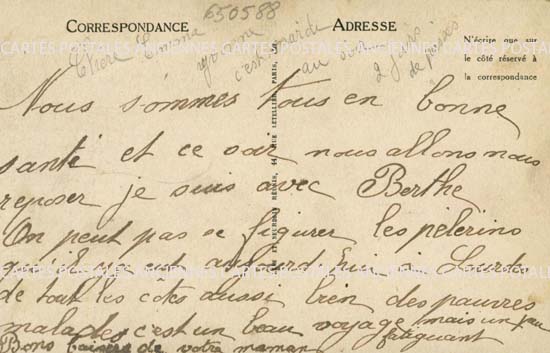 650588
CORRESPONDANCE
ADRESSE
N'écrire que sur
le côté réservé à
la correspondance
Chère
c'est mardi au
2 jours
de
Nous sommes tous en bonne
santé et ce soir nous allons nous
reposer je suis avec Berthe
On peut pas se figurer les pèlerins
qu'il y a eut aujourd'hui à Lourdes
de tout les côtes aussi bien des pauvres
malades c'est un beau voyage mais un peu
fatiguant
Bons baisers de votre maman
CARTES POSTALES ANCIENNES